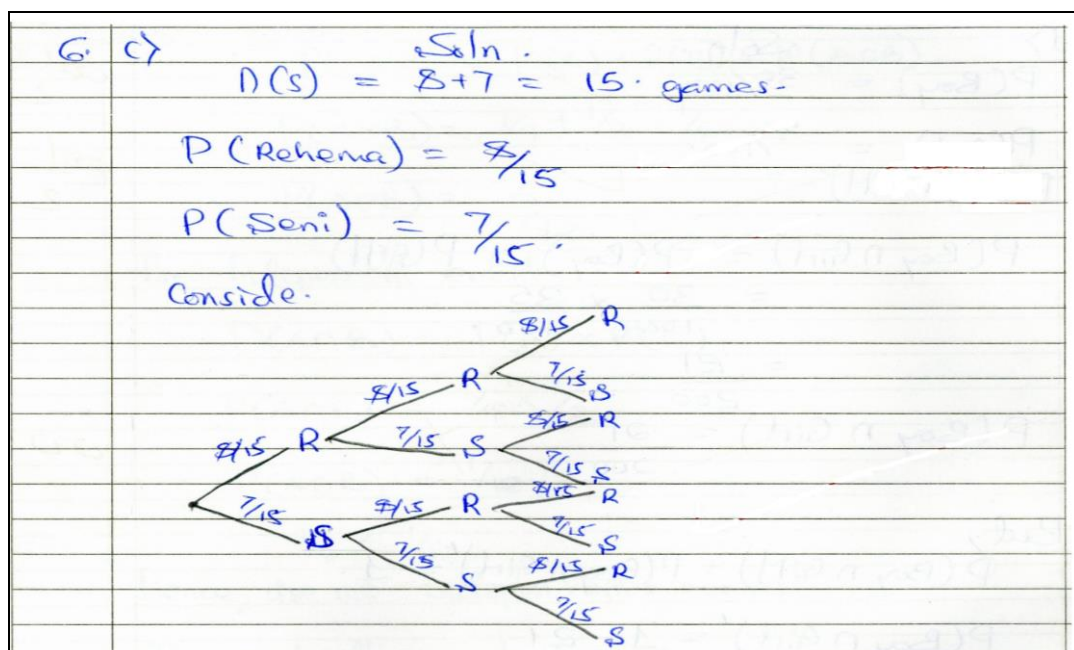 6. c) Soln.
n(S) = 8+7 = 15. games.
P(Rehema) = 8/15
P(Seni) = 7/15.
Conside.
8/15 R
8/15 R 7/15 S
8/15 R 7/15 S 8/15 R
7/15 S
7/15 S 8/15 R 8/15 R
7/15 S
7/15 S 8/15 R
7/15 S